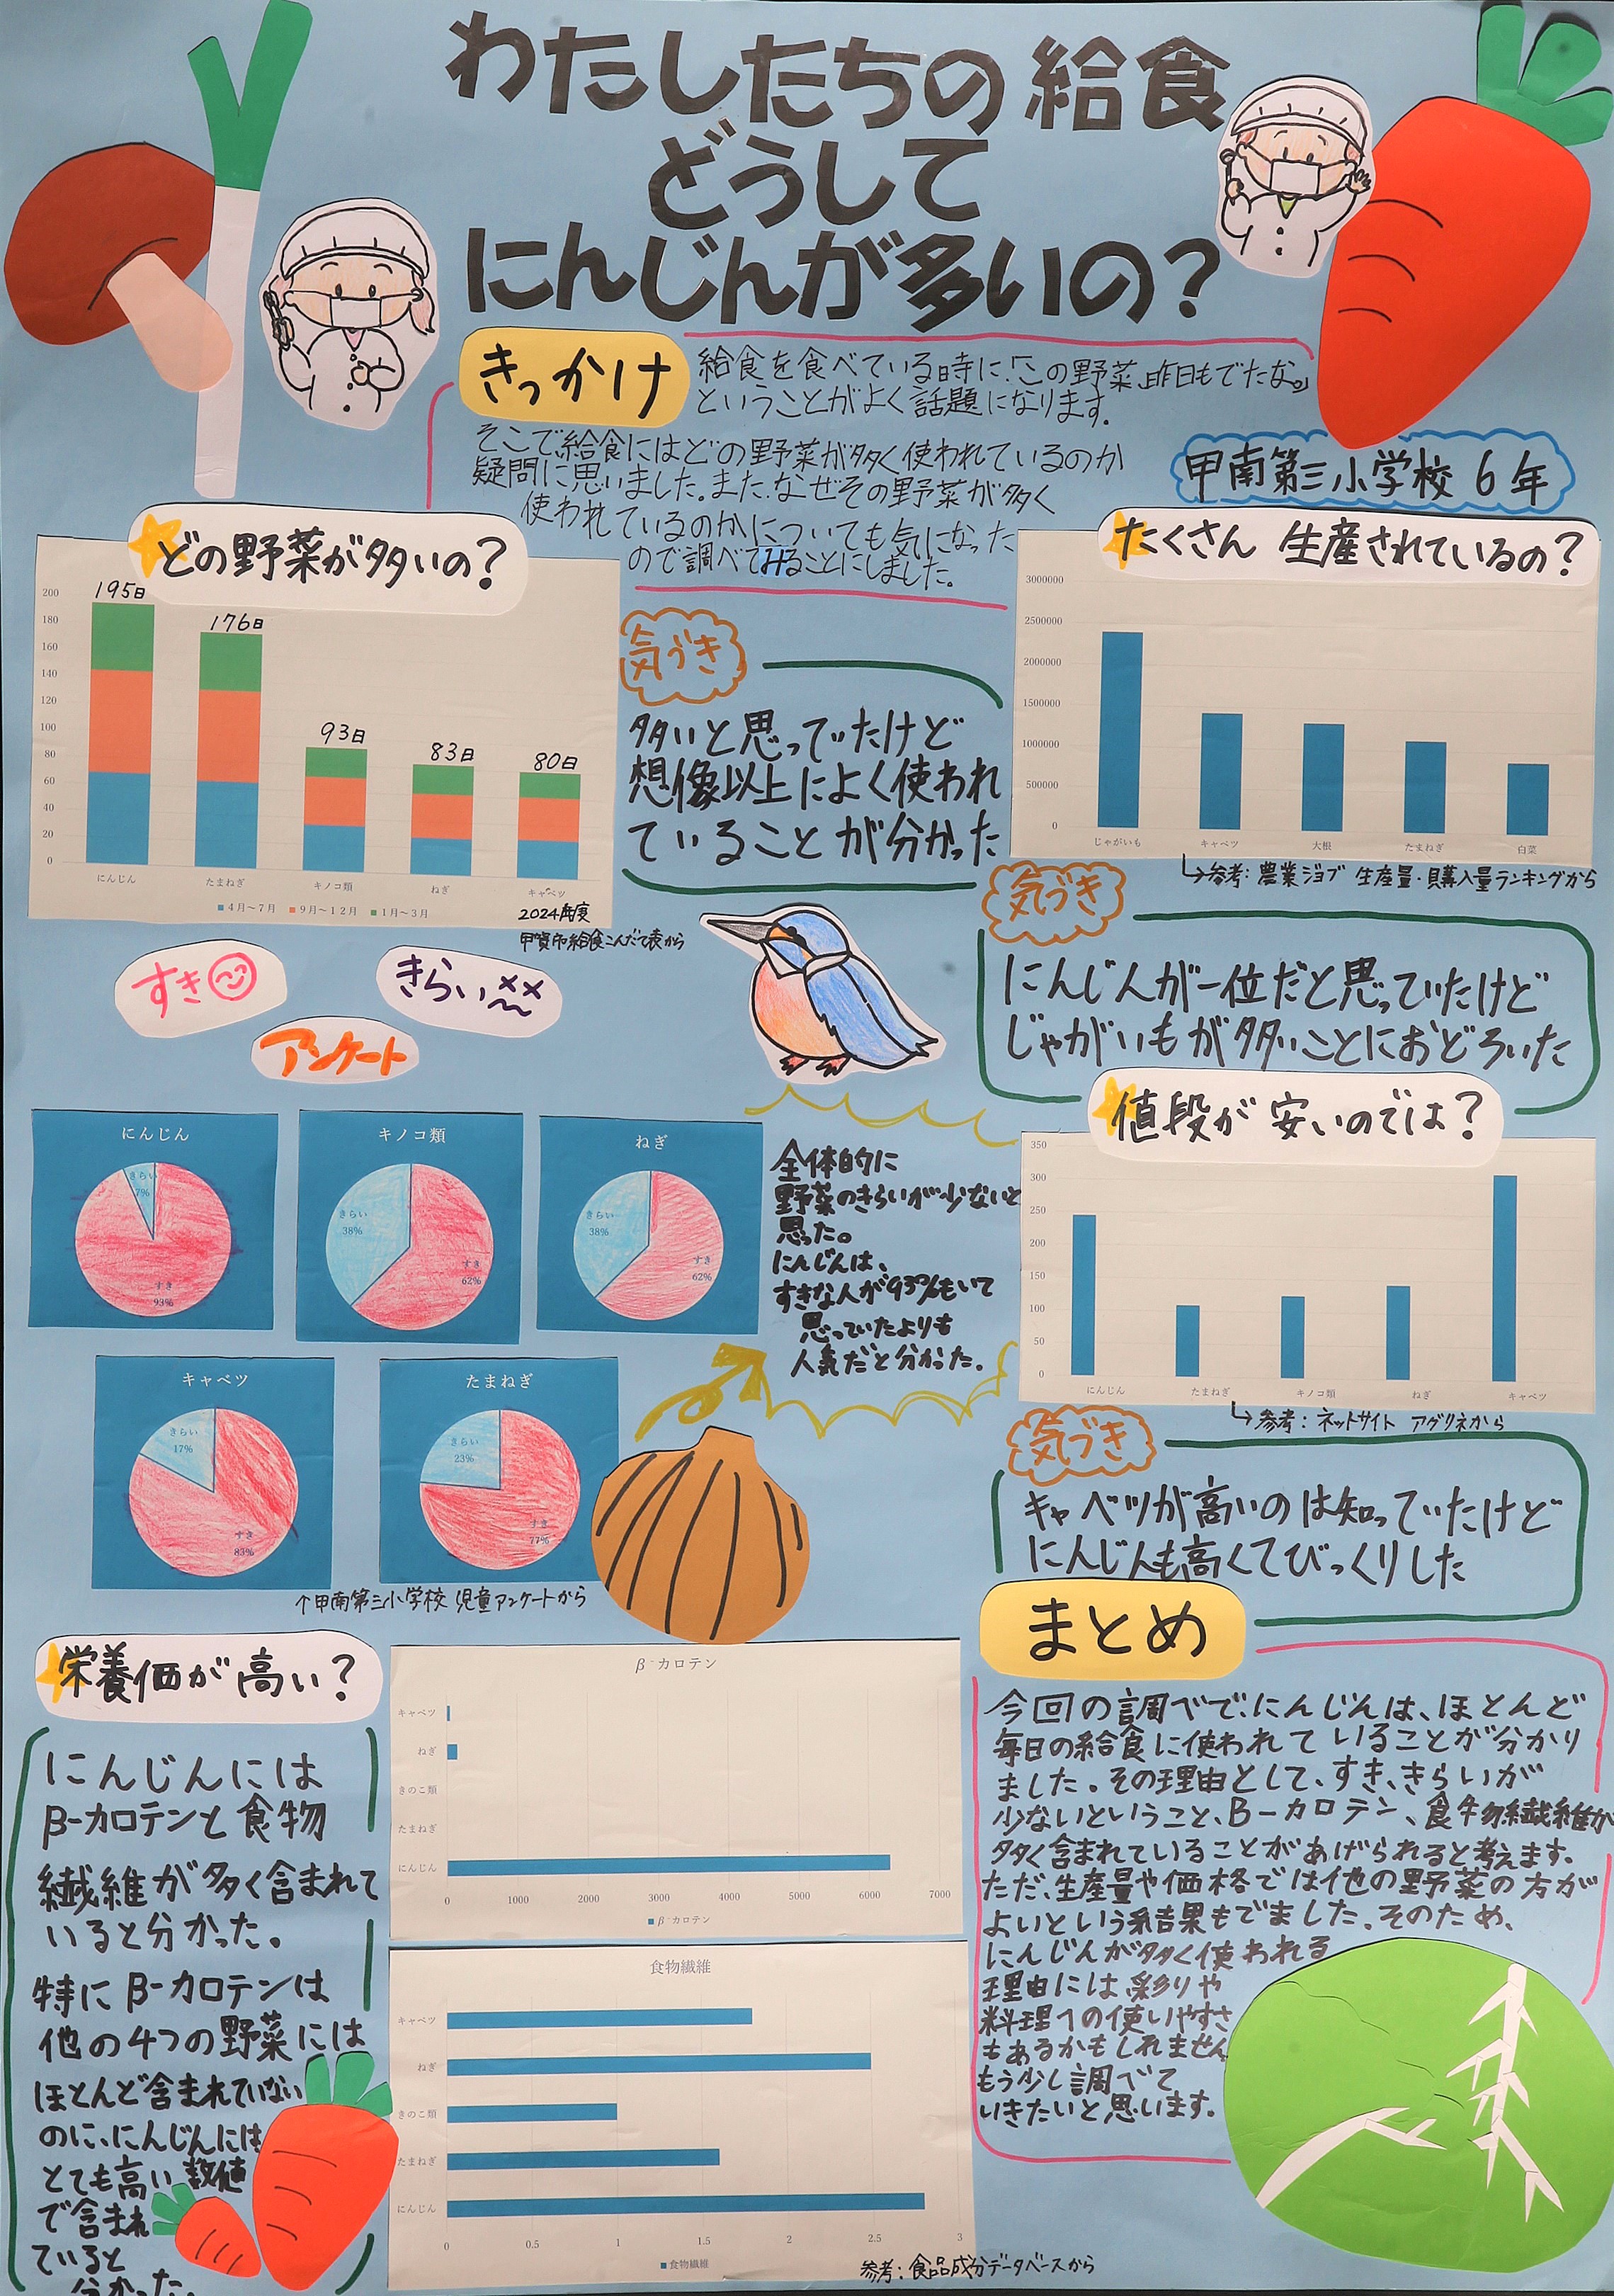 わたしたちの給食
どうして
にんじんが多いの？
きっかけ
給食を食べている時に「この野菜、昨日もでたな。」
ということがよく話題になります。
そこで給食にはどの野菜が多く使われているのか
疑問に思いました。また、なぜその野菜が多く
使われているのかについても気になった
ので調べてみることにしました。
甲南第三小学校 6年
どの野菜が多いの？
200
180
160
140
120
100
80
60
40
20
0
195日
176日
93日
83日
80日
にんじん
たまねぎ
キノコ類
ねぎ
キャベツ
4月～7月 9月～12月 1月～3月
2024年度
甲賀市給食こんだて表から
気づき
多いと思っていたけど
想像以上によく使われ
ていることが分かった
たくさん 生産されているの？
3000000
2500000
2000000
1500000
1000000
500000
0
じゃがいも
キャベツ
大根
たまねぎ
白菜
↳参考：農業ジョブ 生産量・購入量ランキングから
気づき
にんじんが一位だと思っていたけど
じゃがいもが多いことにおどろいた
すき
きらい
アンケート
にんじん
きらい
7%
すき
93%
キノコ類
きらい
38%
すき
62%
ねぎ
きらい
38%
すき
62%
キャベツ
きらい
17%
すき
83%
たまねぎ
きらい
23%
すき
77%
↑甲南第三小学校 児童アンケートから
全体的に
野菜のきらいが少ないと
思った。
にんじんは、
すきな人が93%もいて
思っていたよりも
人気だと分かった。
値段が 安いのでは？
350
300
250
200
150
100
50
0
にんじん
たまねぎ
キノコ類
ねぎ
キャベツ
↳参考：ネットサイト アグリネから
気づき
キャベツが高いのは知っていたけど
にんじんも高くてびっくりした
栄養価が高い？
にんじんには
β-カロテンと食物
繊維が多く含まれて
いると分かった。
特にβ-カロテンは
他の4つの野菜には
ほとんど含まれていない
のに、にんじんには
とても高い数値
で含まれ
ていると
分かった。
β-カロテン
キャベツ
ねぎ
きのこ類
たまねぎ
にんじん
0 1000 2000 3000 4000 5000 6000 7000
β-カロテン
食物繊維
キャベツ
ねぎ
きのこ類
たまねぎ
にんじん
0 0.5 1 1.5 2 2.5 3
食物繊維
参考：食品成分データベースから
まとめ
今回の調べで、にんじんは、ほとんど
毎日の給食に使われていることが分かり
ました。その理由として、すき、きらいが
少ないということ、β-カロテン、食物繊維が
多く含まれていることがあげられると考えます。
ただ、生産量や価格では他の野菜の方が
よいという結果もでました。そのため、
にんじんが多く使われる
理由には彩りや
料理への使いやすさ
もあるかもしれません。
もう少し調べて
いきたいと思います。